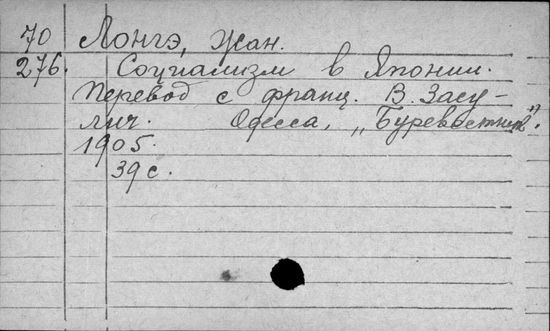 70 Лонгэ, Жан.
276. Социализм в Японии.
Перевод с франц. В. Засу-
лич. Одесса, „Буревестник".
1905.
39 с.